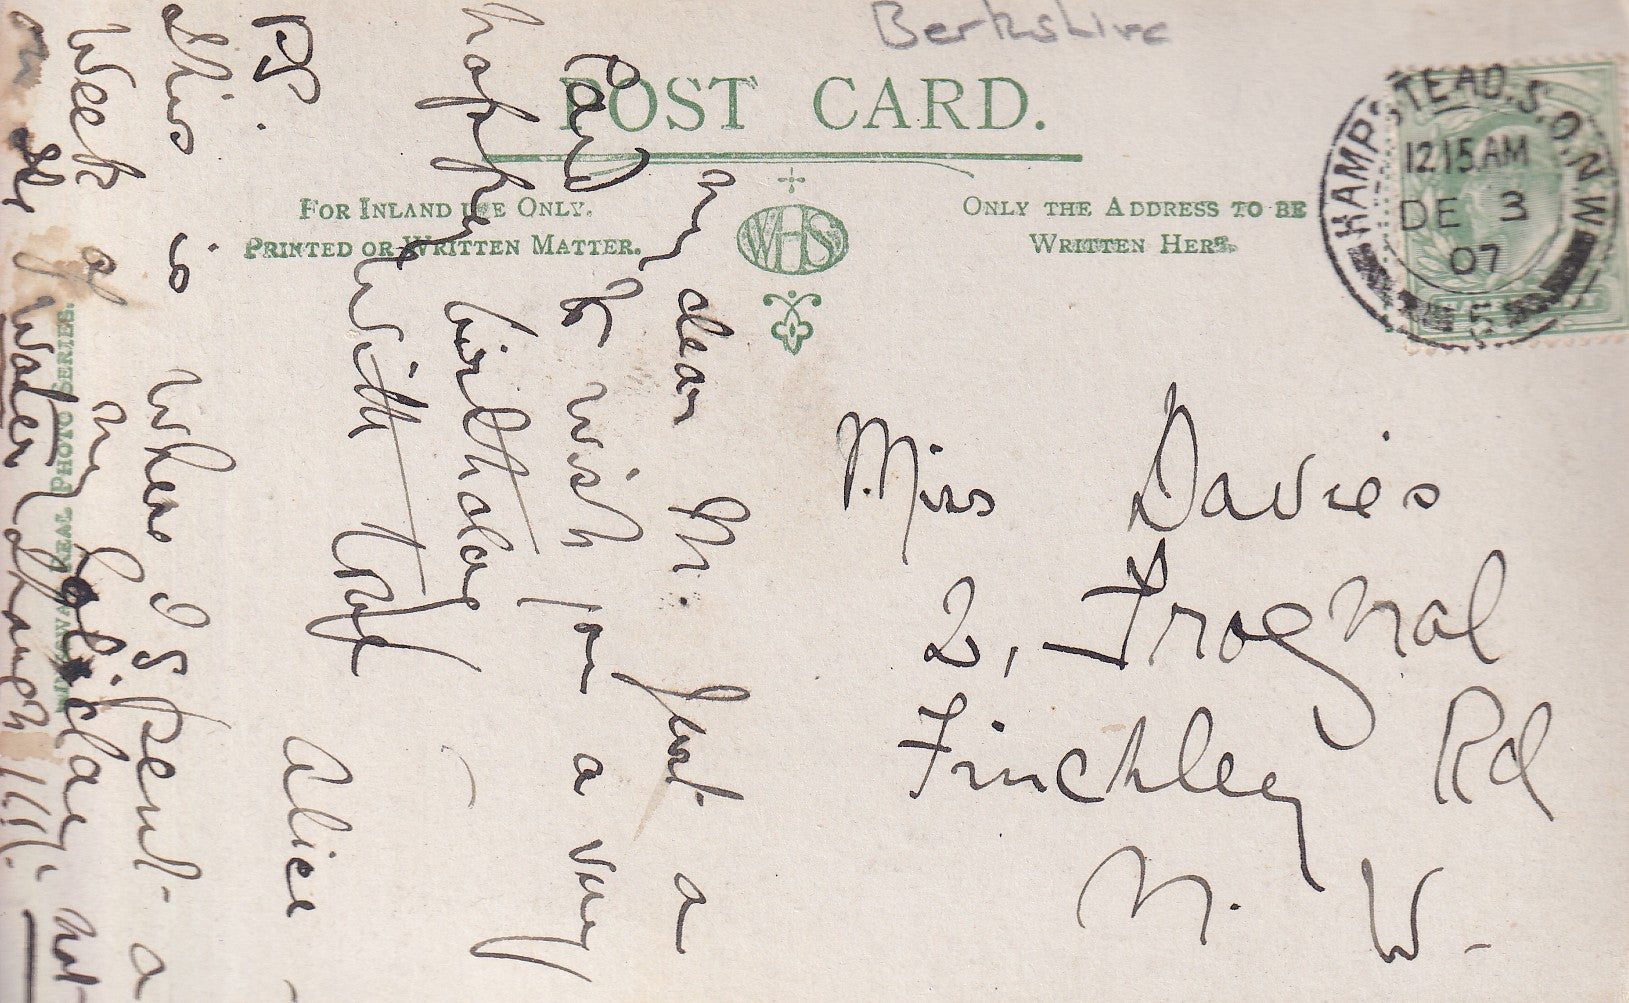 Berkshire
POST CARD.
FOR INLAND USE ONLY.
PRINTED OR WRITTEN MATTER.
WHS
ONLY THE ADDRESS TO BE
WRITTEN HERE.
HAMPSTEAD. S.O. N.W.
12.15 AM
DE 3
07
Miss Davies
2, Frognal
Finchley Rd
N. W.
My dear M. Just a
card to wish you a very
happy birthday
with love
Alice
P.S.
This is where I spent a
week of my holiday not
on the water though!!!!
REAL PHOTO SERIES.